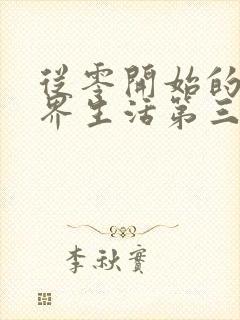 從零開始的
界生活第三
李秋實